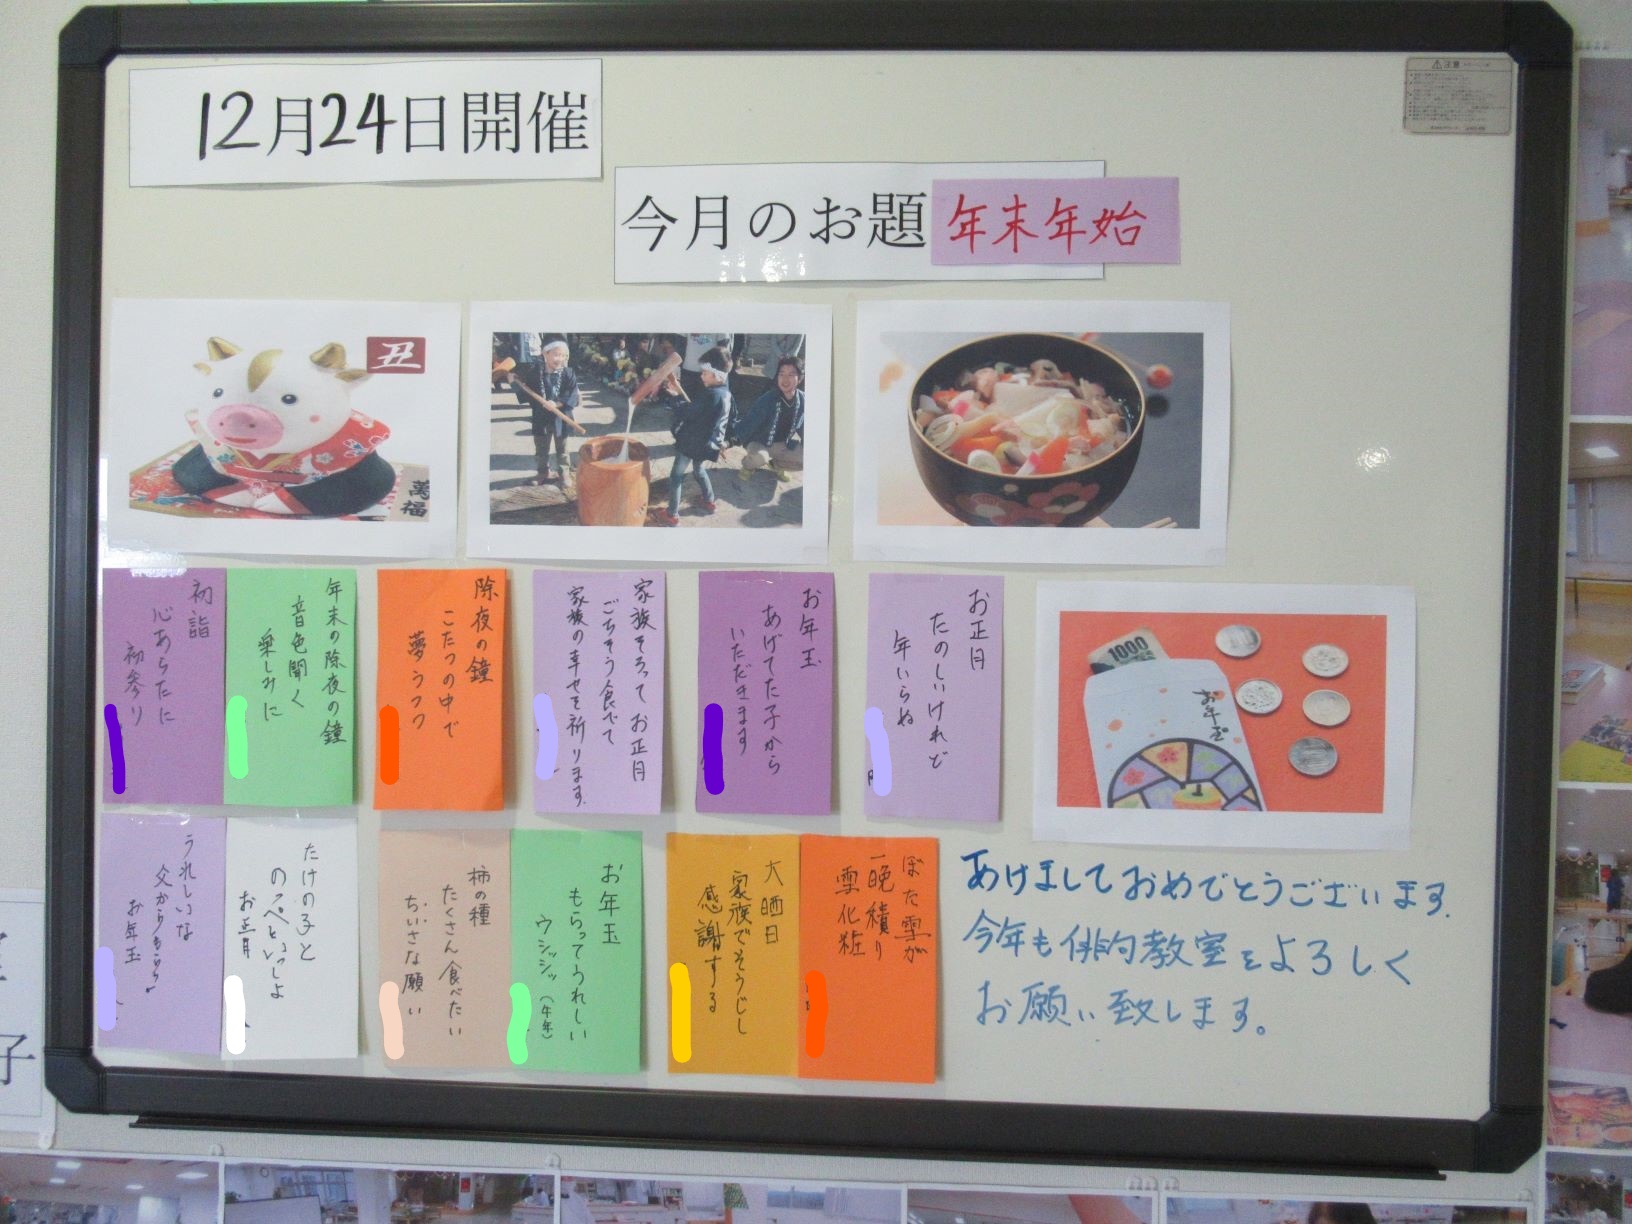 12月24日開催
今月のお題
年末年始
丑
萬福
お正月
たのしいけれど
年いらね
お年玉
あげてた子から
いただきます
家族そろってお正月
ごちそう食べて
家族の幸せを祈ります。
除夜の鐘
こたつの中で
夢うつつ
年末の除夜の鐘
音色聞く
楽しみに
初詣
心あらたに
初参り
1000
お年玉
ぼた雪が
一晩積り
雪化粧
大晒日
家族でそうじし
感謝する
お年玉
もらってうれしい
ウシシッ(牛年)
柿の種
たくさん食べたい
ちいさな願い
たけの子と
のっぺといっしょ
お正月
うれしいな
父からもらう
お年玉
あけましておめでとうございます。
今年も俳句教室をよろしく
お願い致します。
注意